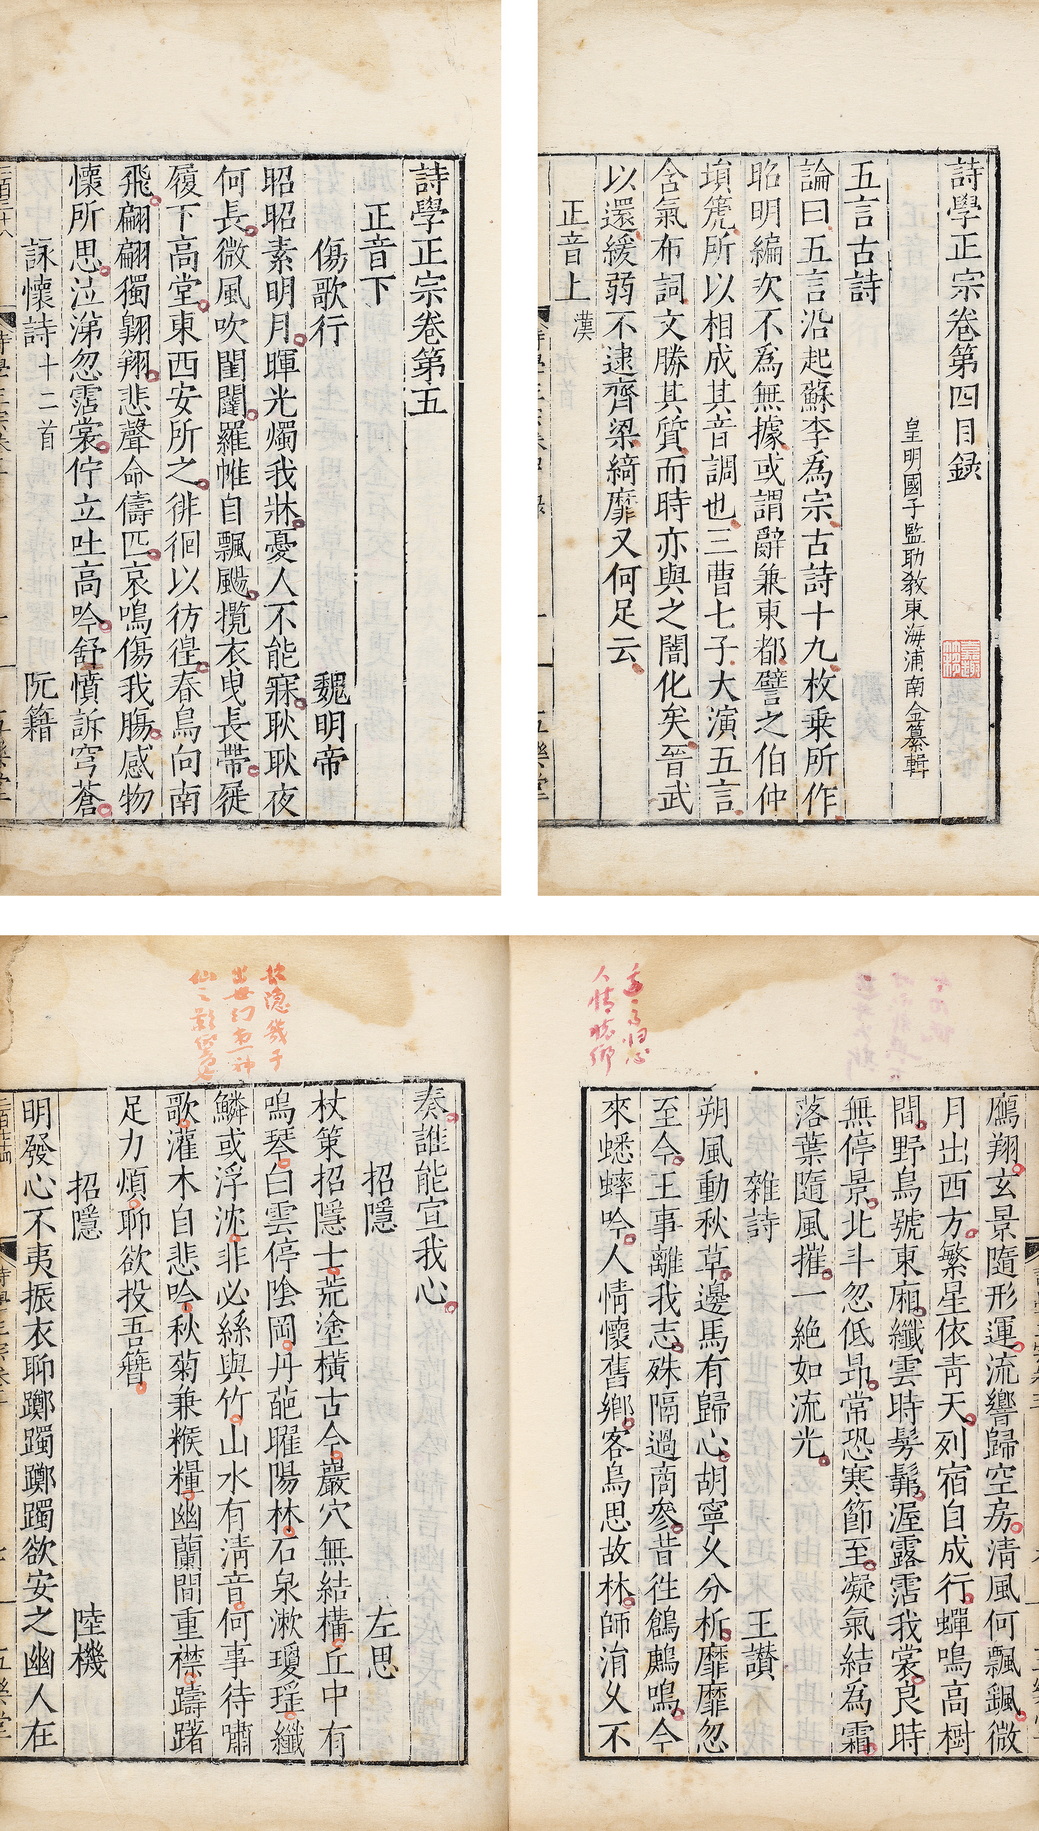 詩學正宗卷第四目録
皇明國子監助敎東海浦南金纂輯
五言古詩
論曰五言沿起蘇李爲宗古詩十九枚乗所作
昭明編次不為無據或謂辭兼東都譬之伯仲
塤箎所以相成其音調也三曹七子大演五言
含氣布詞文勝其質而時亦與之闇化矣晉武
以還緩弱不逮齊梁綺靡又何足云
正音上 漢
詩學正宗卷第五
正音下
傷歌行 魏明帝
昭昭素明月暉光燭我牀憂人不能寐耿耿夜
何長微風吹閨闥羅帷自飄颺攬衣曳長帶屣
履下高堂東西安所之徘徊以彷徨春鳥向南
飛翩翩獨翱翔悲聲命儔匹哀鳴傷我膓感物
懷所思泣涕忽霑裳佇立吐高吟舒憤訴穹蒼
詠懷詩十二首 阮籍
鴈翔玄景隨形運流響歸空房清風何飄飖微
月出西方繁星依青天列宿自成行蟬鳴高樹
間野鳥號東廂纖雲時髣髴渥露霑我裳良時
無停景北斗忽低昂常恐寒節至凝氣結為霜
落葉隨風摧一絶如流光
雜詩 王讃
朔風動秋草邊馬有歸心胡寧久分析靡靡忽
至今王事離我志殊隔過商參昔徃鶬鶊鳴今
來蟋蟀吟人情懷舊鄉客鳥思故林師涓久不
人情戀鄉
奏誰能宣我心
招隱 左思
杖策招隱士荒塗橫古今巖穴無結構丘中有
鳴琴白雲停陰岡丹葩曜陽林石泉漱瓊瑶纖
鱗或浮沈非必絲與竹山水有清音何事待嘯
歌灌木自悲吟秋菊兼糇糧幽蘭間重襟躊躇
足力煩聊欲投吾簪
招隱 陸機
明發心不夷振衣聊躑躅躑躅欲安之幽人在